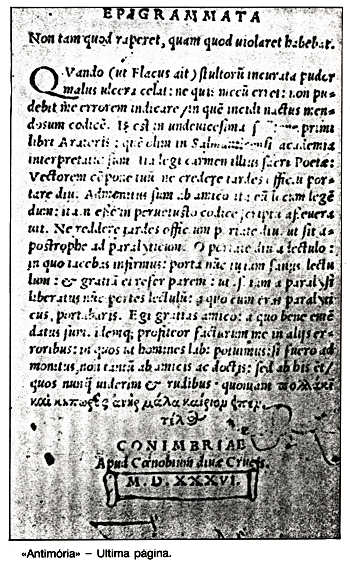 EPIGRAMMATA
Non tam quod raperet, quam quod uiolaret habebat.
QVando (ut Flacus ait) stultorũ incurata pudor
malus ulcera celat: ne quis mecũ erret: non pu-
debit me errorem indicare, in quẽ incidi nactus men-
dosum codicẽ. Is est in undeuicesima primi
libri Aratoris: quẽ olim in academia
interpretatus sum ita legi carmen illius sacri Poetæ:
Vectorem ne credere tardes por-
tare diu. Admonitus sum ab amico ita eũ locum legẽ
dum: ita n. esse in peruetusto codice scripta
uit. Ne reddere tardes officium portare diu: ut sit a-
postrophe ad paralyticum. O portate diu a lectulo:
in quo iacebas infirmus: porta nũc iam sanus lectu
lum: & gratiã ei refer parem: ut si iam a paralysi
liberatus nũc portes lectulũ: a quo cum eras paralyti
cus, portabaris. Egi gratias amico: a quo bene emẽ
datus sum: idemq; profiteor facturum me in alijs er-
roribus: in quos ut homines labi possumus: si fuero ad
monitus, non tantũ ab amicis ac doctis: sed ab his et/
quos nunq̃ uiderim & rudibus: quoniam πολλάκι
καὶ ἀνὴρ μάλα καίριον
CONIMBRIAE
Apud Cœnobium diuæ Crucis.
M. D. XXXVI.
«Antimória» – Ultima página.